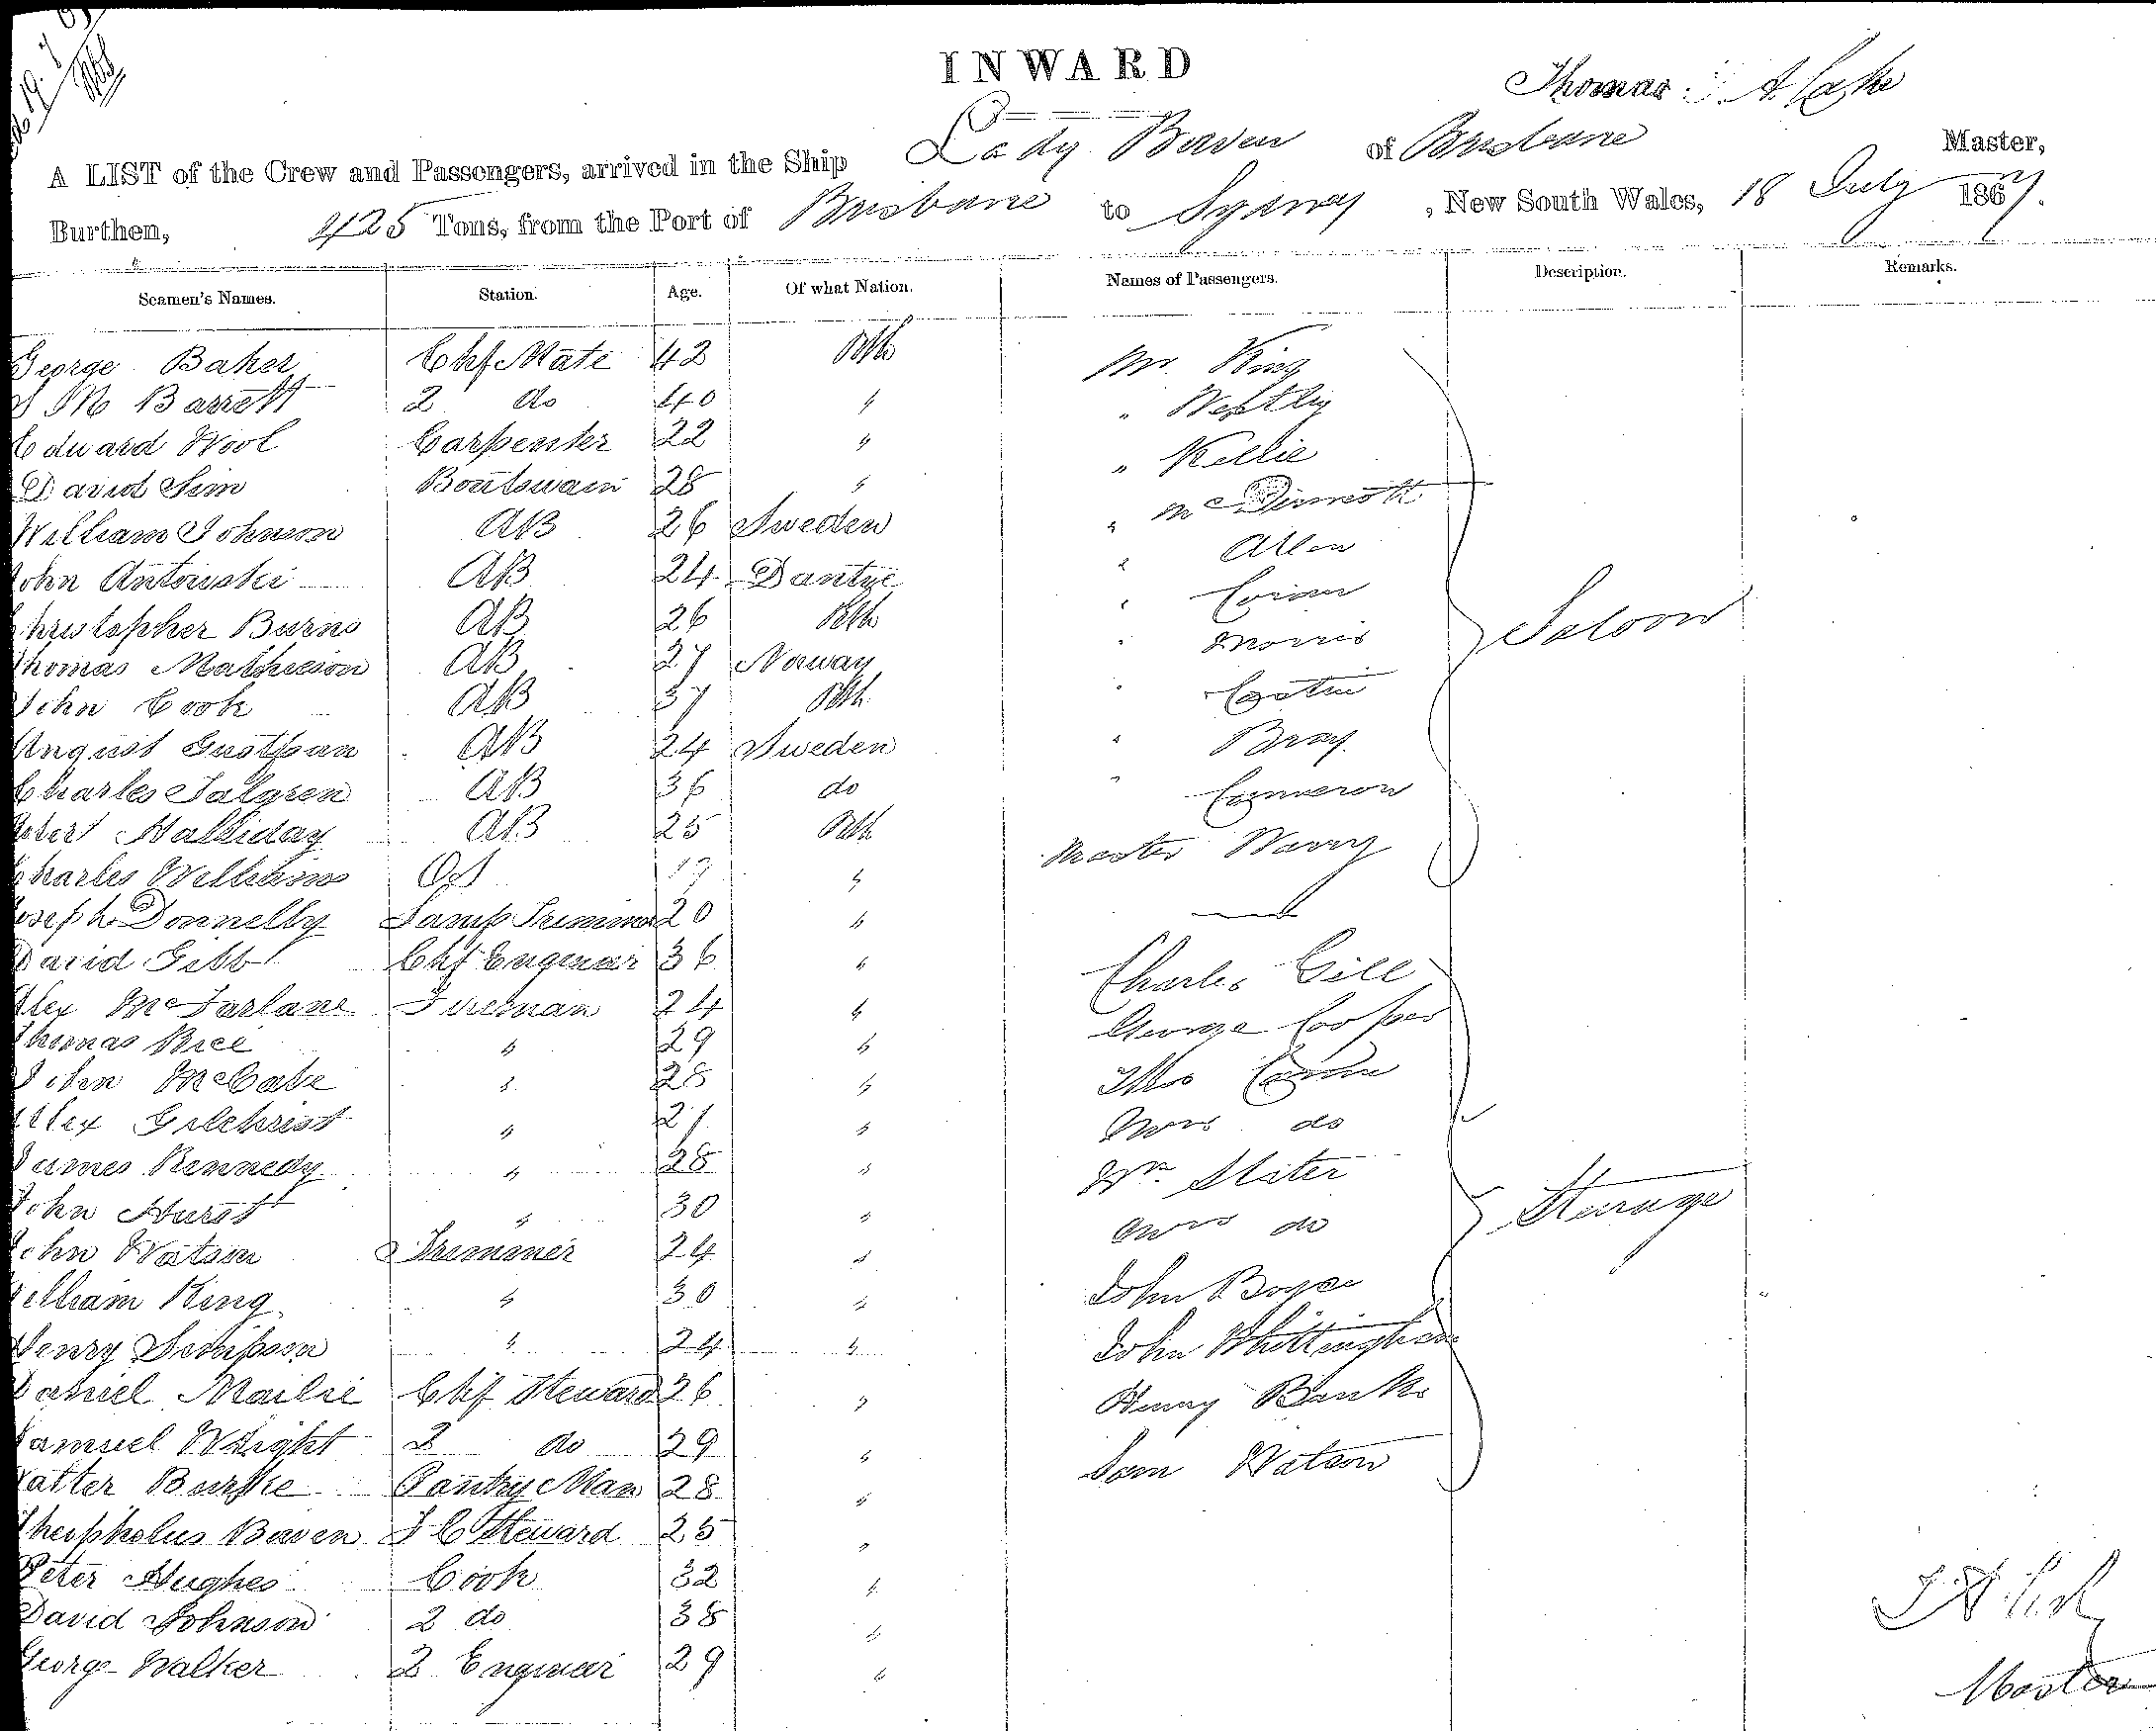 INWARD
Thomas A Lake
A LIST of the Crew and Passengers, arrived in the Ship Lady Bowen of Brisbane Master,
Burthen, 425 Tons, from the Port of Brisbane to Sydney, New South Wales, 18 July 1867.
Seamen's Names. Station. Age. Of what Nation. Names of Passengers. Description. Remarks.
George Baker Chf Mate 42 Bth Mr. King
Barrett 2 do 40 " "
Edward Wool Carpenter 22 " " Kellie
David Sim Boatswain 28 " " McDermott
William Johnson AB 26 Sweden " Allen
John Antowski AB 24 "
Christopher Burns AB 26 Bth " Morris
Thomas Mathieson AB 27 Norway "
John Cook AB 37 Bth " Bray
August AB 24 Sweden " Cameron
Charles Salgren AB 36 do
Robert Halliday AB 25 Bth Master
Charles Williams OS 19 "
Joseph Donnelly Lamp Trimmer 20 "
David Gibb Chf Engineer 36 " Charles Gill
Alex McFarlane Fireman 24 " George Cooper
Thomas Rice " 29 "
John McCabe " 28 " do
Alex Gilchrist " 27 "
James Kennedy " 28 " Wm. Slater
John Hurst " 30 " do
John Watson Trimmer 24 "
William King " 30 " John Boyce
Henry Simpson " 24 " John Whittingham
Daniel Mailie Chf Steward 26 " Henry Banks
Samuel Wright 2 do 29 " Sam Watson
Burke Pantry Man 28 "
Theopholus Bowen F C Steward 25 "
Peter Hughes Cook 32 "
David Johnson 2 do 38 "
George Walker 2 Engineer 29 "
Saloon
Steerage
Master